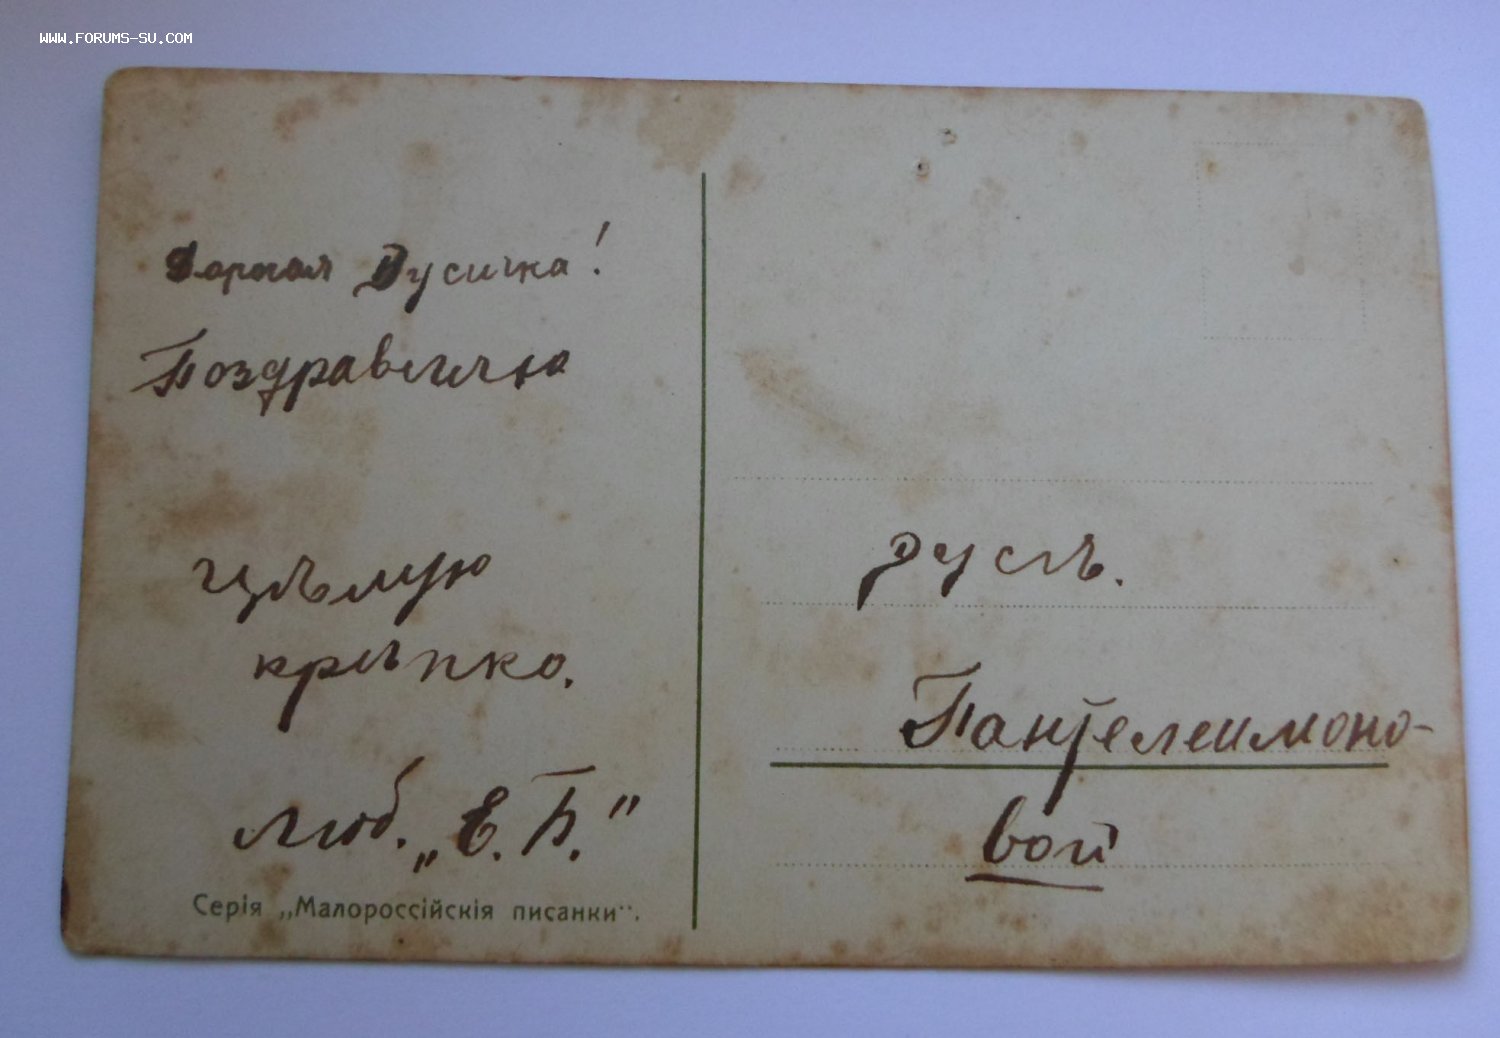 WWW.FORUMS-SU.COM
Дорогая Дусичка!
Поздравляю
цѣлую
крѣпко.
Люб. „Е. Б."
Серія „Малороссійскія писанки".
Дусѣ.
Пантелеимоно-
вой